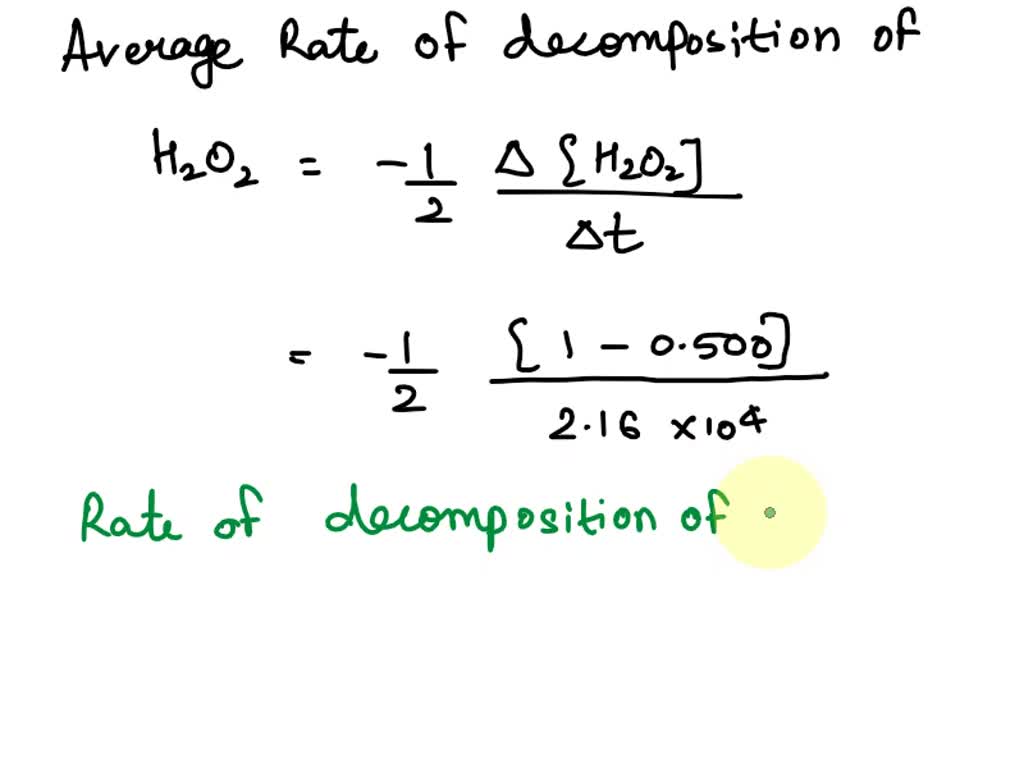 Average Rate of decomposition of
H₂O₂ = -1/2 Δ{H₂O₂]/Δt
= -1/2 {1 - 0.500]/2.16 ×10⁴
Rate of decomposition of